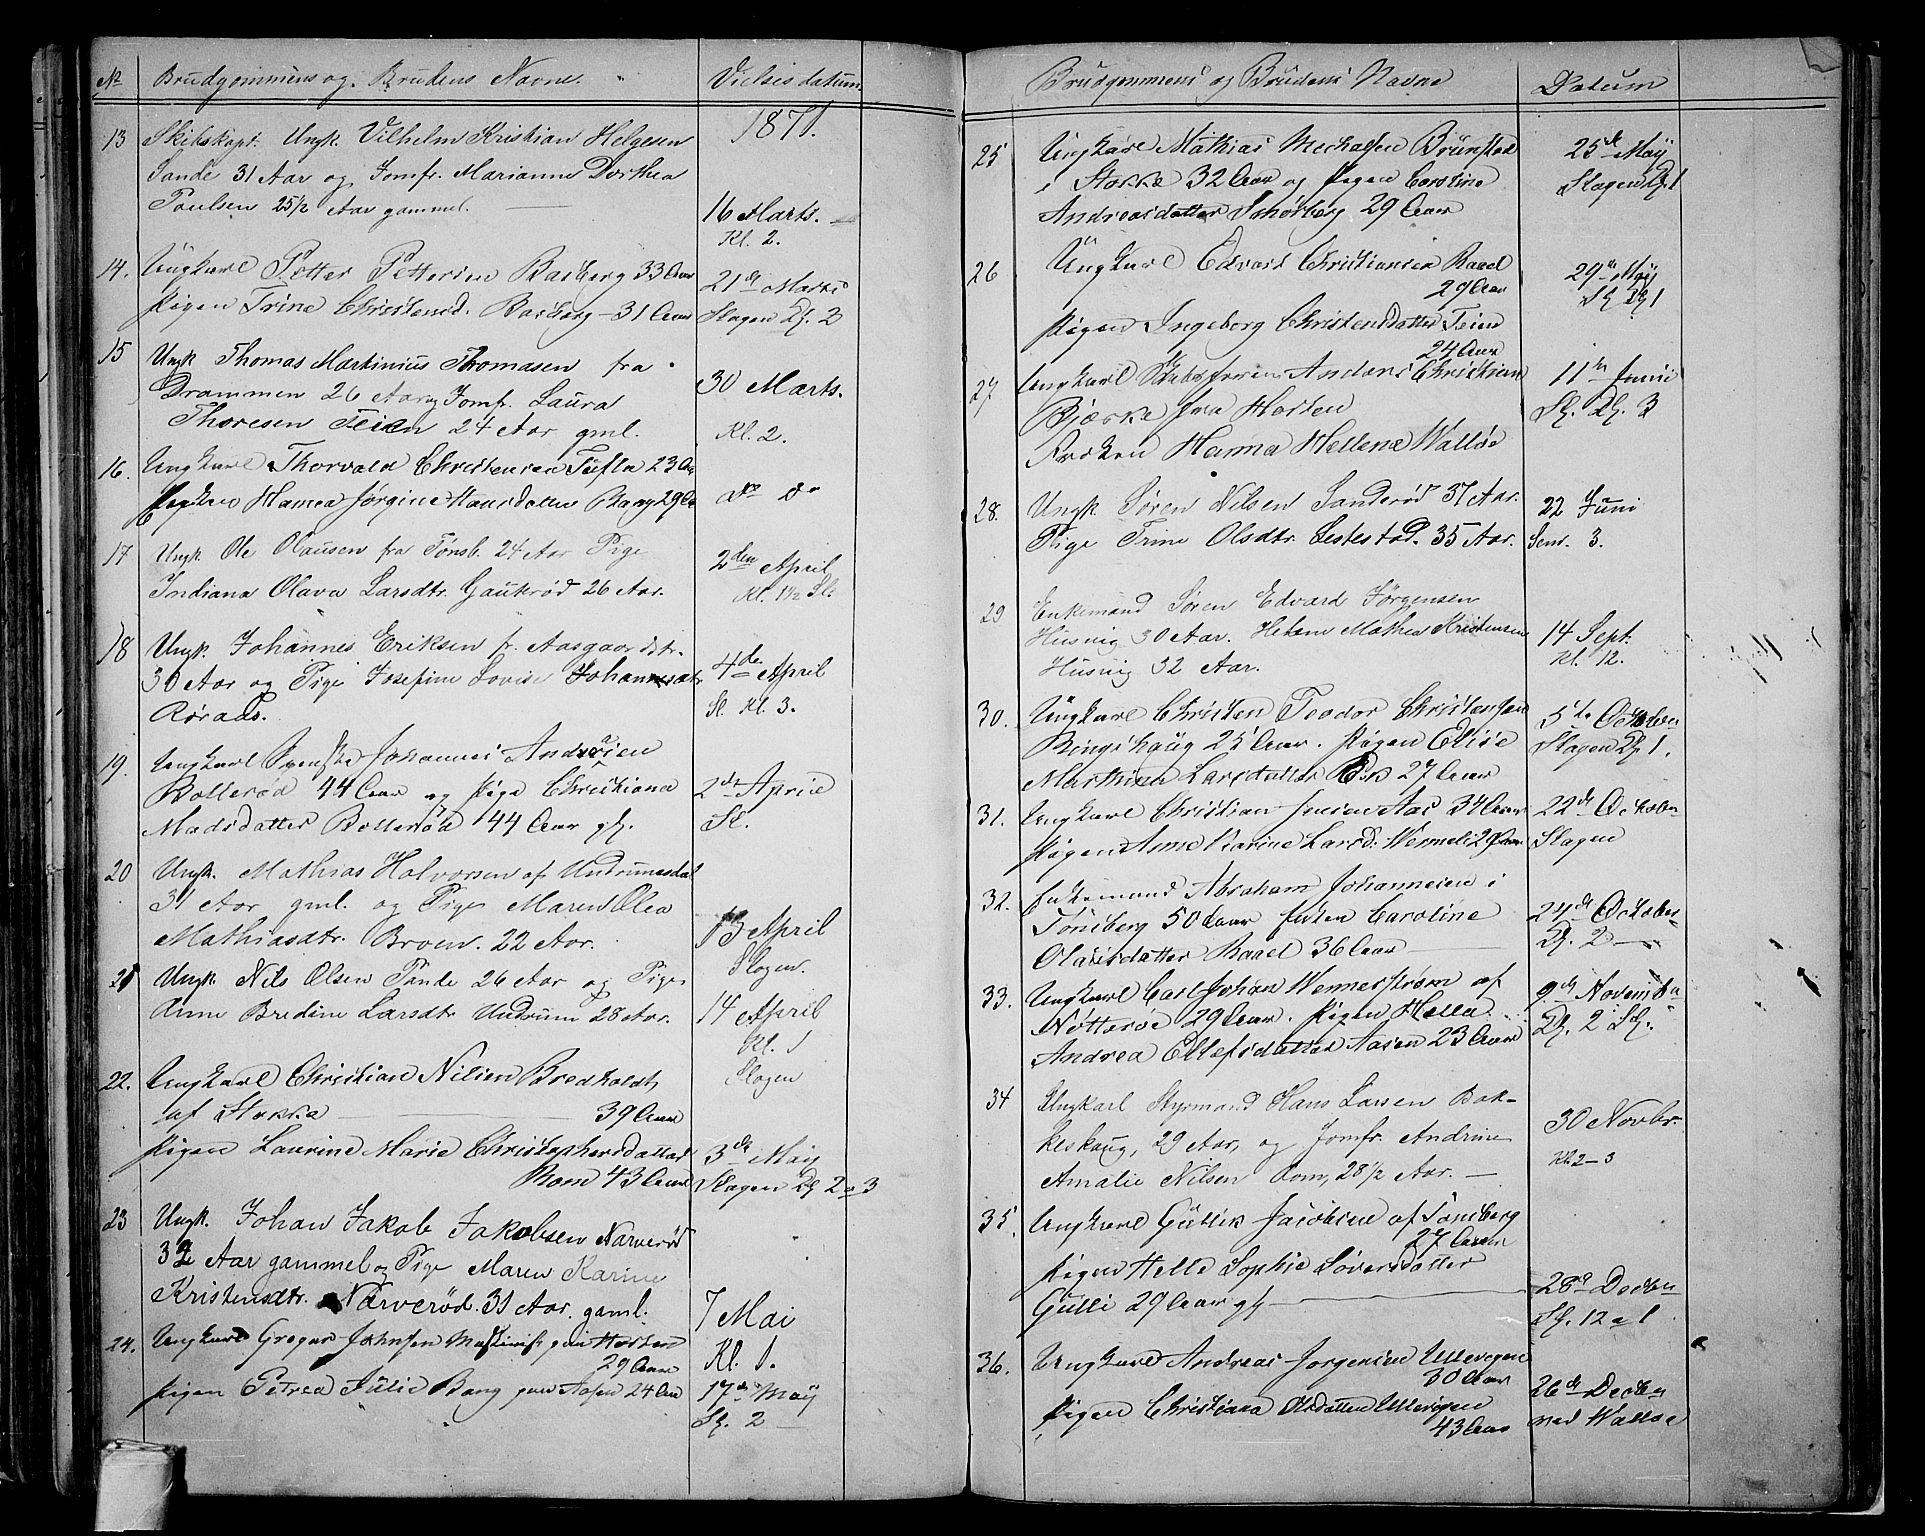 No Brudgommens og Brudens Navne. Vielsis datum
1871.
13 Skibskapt. Ungk. Vilhelm Kristian Helgesen
Sande 31 Aar og Jomfr. Marianne Dorthea
Poulsen 25 1/2 Aar gammel. 16 Marts.
Kl. 2.
14. Ungkarl Petter Pettersen Basberg 33 Aar
Pigen Trine Christensd. Basberg 31 Aar
21de Marts
Slagen Kl. 2
15 Ungk Thomas Martinius Thomasen fra
Drammen 26 Aar og Jomfr. Laura
Thoresen Teien 24 Aar gml.
30 Marts.
Kl. 2.
16. Ungkarl Thorvald Christensen Tufla 23 Aa
Pigen Hanna Jørgine Hansdatter Bang 29 Aa
do do
17 Ungk. Ole Olausen fra Tønsb. 24 Aar Pige
Indiana Olava Larsdtr. Gaukrød 26 Aar.
2den April
Kl. 1 1/2 Sl.
18 Ungk. Johannes Eriksen fr. Aasgaardstr.
30 Aar og Pige Josefine Lovise Johannesdtr
Røraas.
4de April
Sl. Kl. 3.
19. Ungkarl Svenske Johannes Andresen
Bollerød 44 Aar og Pige Christiana
Madsdatter Bollerød 44 Aar gl.
2de April
Sl.
20 Ungk. Mathias Halvorsen af Undrumsdal
31 Aar gml. og Pige Maren Olea
Mathiasdtr. Broen. 22 Aar.
13 April
Slagen.
21 Ungk. Nils Olsen Rande 26 Aar og Pige
Anne Bredine Larsdtr Undrum 28 Aar.
14 April
Kl. 1
Slagen
22. Ungkarl Christian Nilsen Bredholdt
af Stokke 39 Aar
Pigen Laurine Marie Christophersdatter
Rom 43 Aar
3de May
Slagen Kl 2 a 3
23 Ungk. Johan Jakob Jakobsen Narverød
32 Aar gammel og Pige Maren Karine
Kristensdtr. Narverød. 31 Aar. gaml.
7 Mai
Kl. 1.
24. Ungkarl Gregar Johnsen Maskinist paa Horten
29 Aar
Pigen Petrea Julie Bang paa Aasen 24 Aar
17de May
Kl. 2
Brudgommens og Brudens Navne Datum
25 Ungkarl Mathias Michalsen Brunstad
i Stokke 32 Aar og Pigen Caroline
Andreasdatter Schørberg 29 Aar
25de May
Slagen Kl. 1
26 Ungkarl Edvard Christiansen Raael
29 Aar
Pigen Ingeborg Christensdatter Teien
24 Aar
29de May
Sl Kl 1
27 Ungkarl Anders Christian
Bjerke fra Horten
Frøken Hanna Hellena Walløe
11te Junii
Sl. Kl. 3
28. Ungk. Søren Nilsen Sanderød 37 Aar.
Pige Trine Olsdtr. Lestestad. 35 Aar.
22 Juni
Sem. 3.
29 Enkemand Søren Edvard Jørgensen
Husvig 30 Aar. Helene Mathea Kristensen
Husvig 32 Aar.
14 Sept.
Kl. 12.
30. Ungkarl Christen Teodor Christensen
Ringshaug 25 Aar. Pigen Elise
Mathiea Larsdatter Rus 27 Aar
5te October
Slagen Kl 1.
31. Ungkarl Christian Jensen Aas 34 Aar
Pigen Anne Karine Larsd. Wermeli 29 Aar
22de October
Slagen
32. Enkemand Abraham Johannesen i
Tønsberg 50 Aar Pigen Caroline
Olausdatter Raael 36 Aar
24de October
Kl. 2
33. Ungkarl Carl Johan Wennerstrøm af
Nøtterøe 29 Aar. Pigen Hella
Andrea Ellefsdatter Aasen 23 Aar
9de November
Kl. 2 Sl.
34 Ungkarl Styrmand Hans Larsen Bak-
keskaug, 29 Aar, og Jomfr. Andrine
Amalie Nilsen Rom, 28 1/2 Aar.
30 Novbr.
Kl. 2-3
35. Ungkarl Gullik Jacobsen af Tønsberg
27 Aar
Pigen Helle Sophie Sørensdatter
Gulli 29 Aar gl
28de Decber
Kl. 12 a 1
36. Ungkarl Andreas Jørgensen Ullevigen
30 Aar
Pigen Christiana Olsdatter Ullevigen
43 Aar
26de Decber
ved Walløe